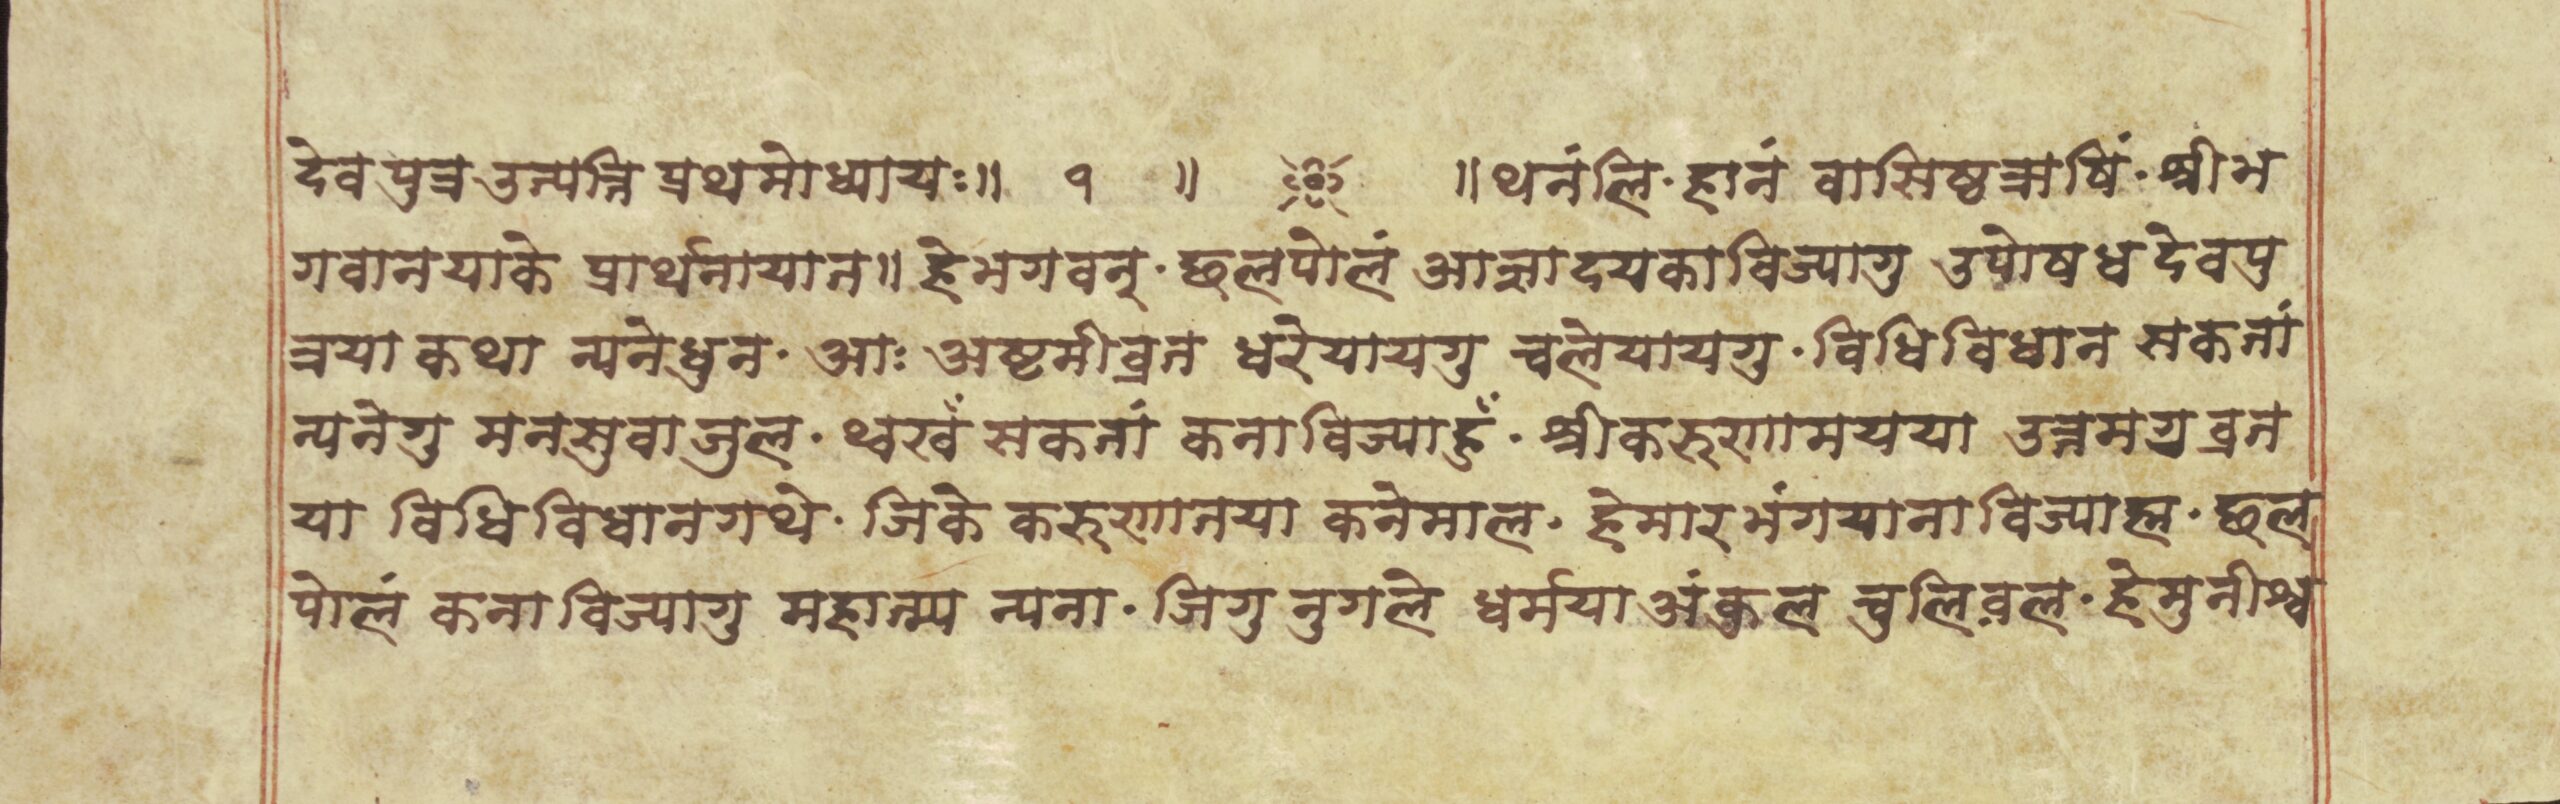 देवपुत्रउत्पत्ति प्रथमोध्यायः॥ १ ॥ ॥थनंलि·हानं वासिष्ठऋषिं·श्रीभ
गवानयाके प्रार्थनायात॥हेभगवन्·छलपोलं आज्ञादयकाविज्यागु उपोषधदेवपु
त्रया कथा न्यनेधुन·आः अष्टमीव्रत धरेयायगु चलेयायगु·विधिविधान सकतां
न्यनेगु मनसुवाजुल·थ्वखँ सकतां कनाविज्याहुँ·श्रीकरुणामयया उत्तमगुव्रत
या विधिविधानगथे·जिके करुणातया कनेमाल·हेमारभंगयानाविज्याह्म·छल
पोलं कनाविज्यागु महात्म्य न्यना·जिगु नुगले धर्मयाअंकुल चुलिवल·हेमुनीश्व